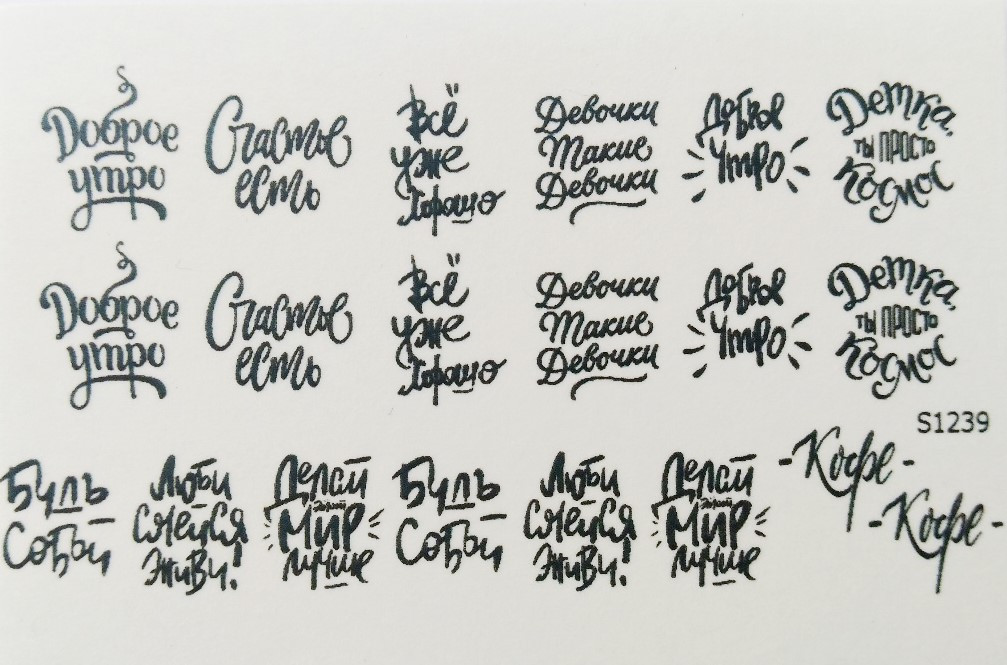 Доброе
утро
Счастье
есть
Всё
уже
Хорошо
Девочки
Такие
Девочки
Доброе
Утро
Детка,
ты просто
Космос
Доброе
утро
Счастье
есть
Всё
уже
Хорошо
Девочки
Такие
Девочки
Доброе
Утро
Детка,
ты просто
Космос
S1239
Будь
Собой
Люби
Смейся
Живи!
Делай
Мир
лучше
Будь
Собой
Люби
Смейся
Живи!
Делай
Мир
лучше
-Кофе-
-Кофе-